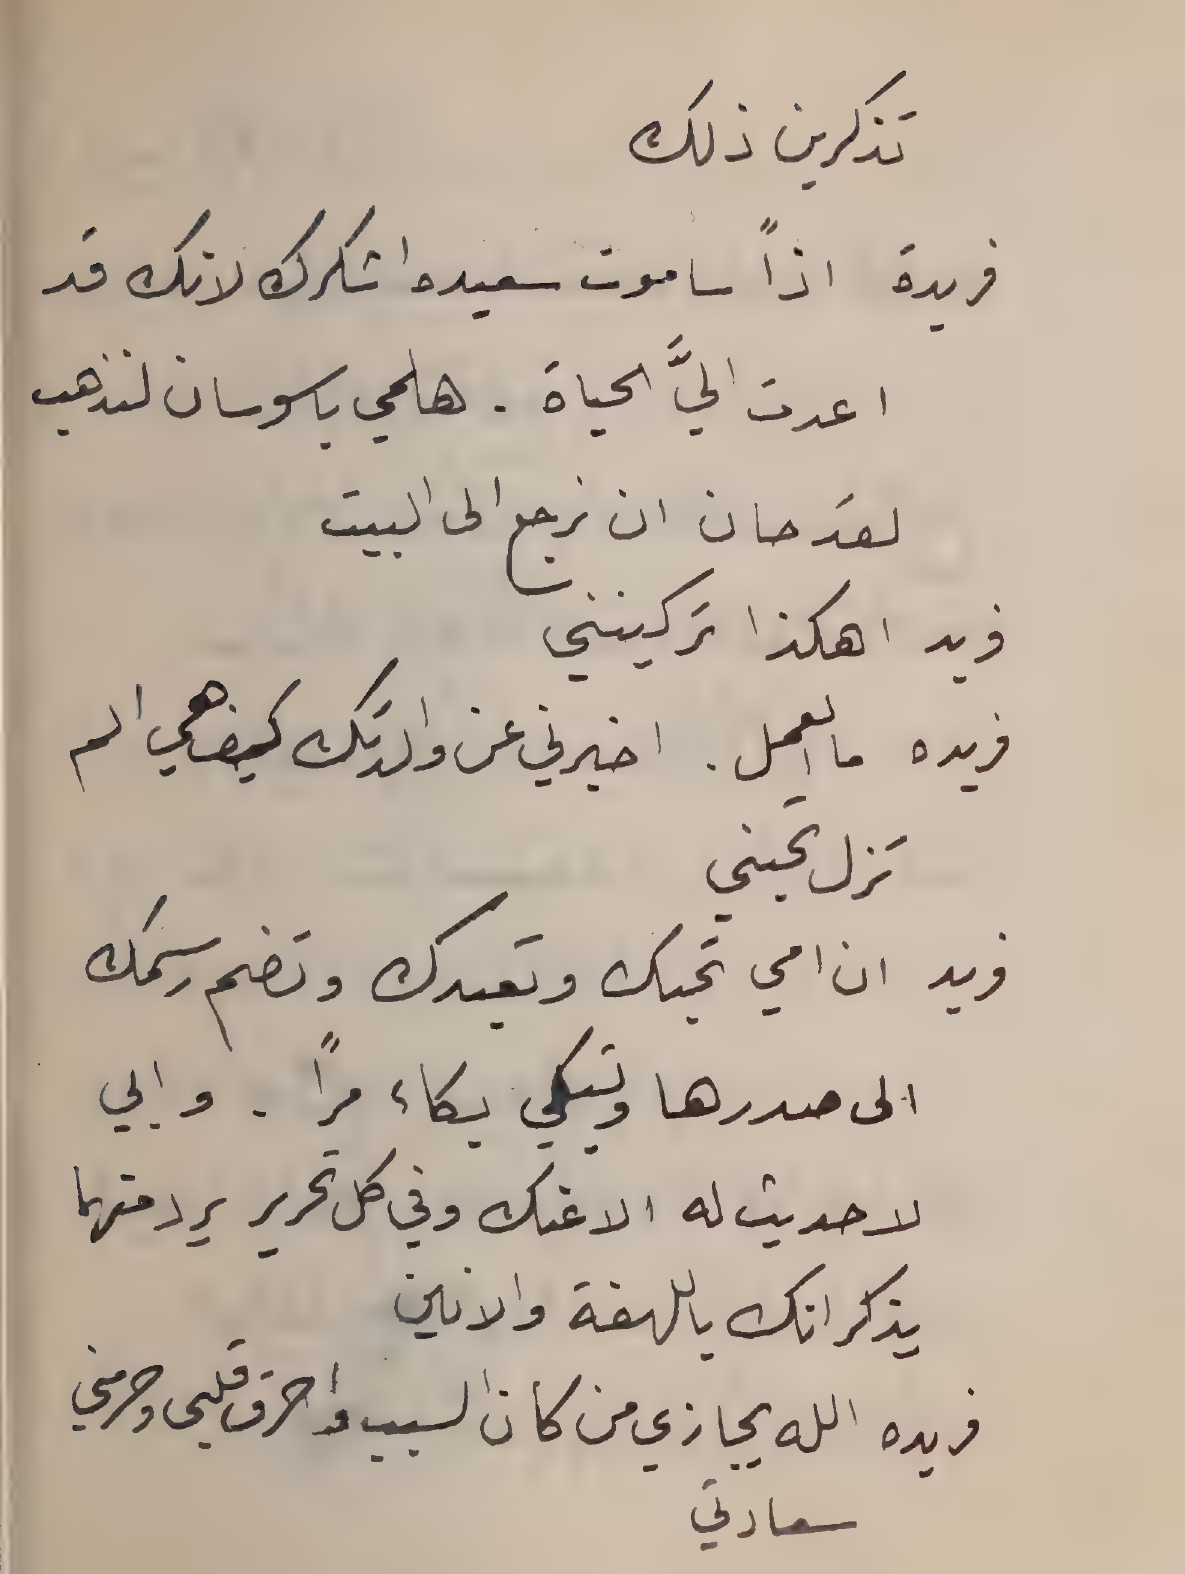 تذكرين ذلك
فريدة اذاً ساموت سعيده اشكرك لانك قد
اعدت اليَّ الحياة . هلمي ياسوسان لنذهب
لقد حان ان نرجع الى البيت
فريد اهكذا تركينني
فريده ما العمل . اخبرني عن والدتك كيف هي الم
تزل تحبني
فريد ان امي تحبك وتعبدك وتضم رسمك
الى صدرها وتبكي بكاء مراً . وابي
لا حديث له الا عنك وفي كل تحرير يرد منهما
يذكرانك باللهفة والانين
فريده الله يجازي من كان السبب واحرق قلبي وحرمني
سعادتي